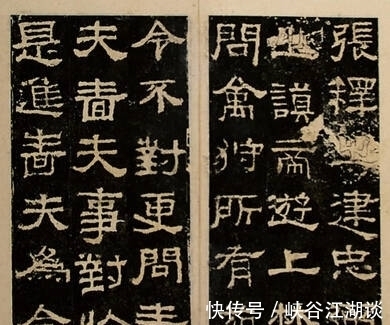 張釋建忠
之謨帝遊上
問禽狩所有
令不對更問嗇
夫嗇夫事對於
是進嗇夫為令
快传号/峡谷江湖谈